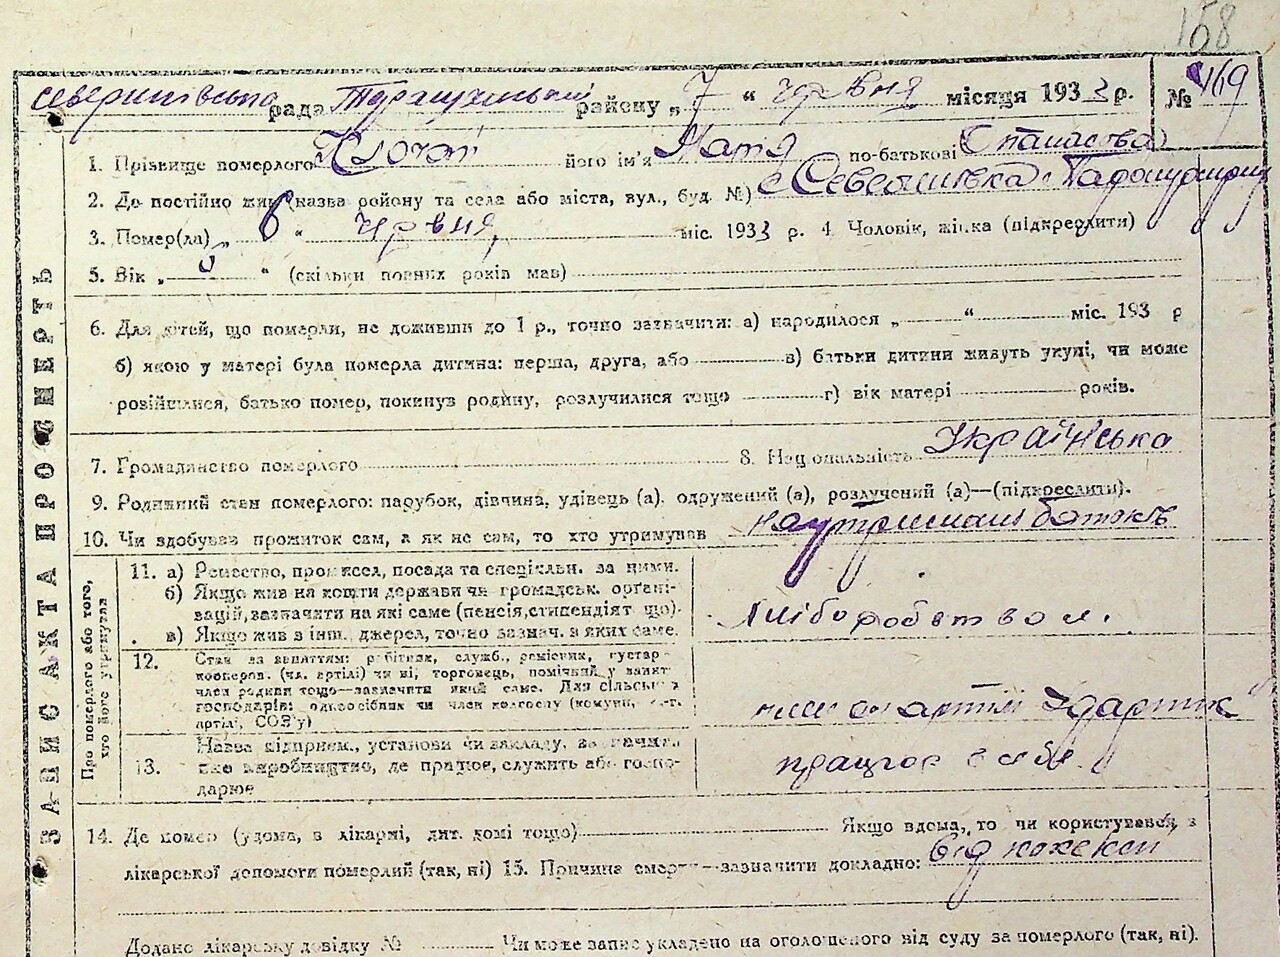 158
Северинівська рада Таращанський району „7“ червня місяця 1933 р. № 169
1. Прізвище померлого Клочай його ім'я Натя по-батькові
2. Де постійно жив (назва району та села або міста, вул., буд. №) с Северинівка
3. Помер(ла) „6“ червня міс. 1933 р. 4. Чоловік, жінка (підкреслити)
5. Вік „ “ (скільки повних років мав)
6. Для дітей, що померли, не доживши до 1 р., точно зазначити: а) народилося „ “ міс. 193 р
б) якою у матері була померла дитина: перша, друга, або в) батьки дитини живуть укупі, чи може
розійшлися, батько помер, покинув родину, розлучилися тощо г) вік матері років.
7. Громадянство померлого 8. Національність Українська
9. Родинний стан померлого: парубок, дівчина, удівець (а). одружений (а), розлучений (а)—(підкреслити).
10. Чи здобував прожиток сам, а як не сам, то хто утримував на утриманні батьків
ЗАПИС АКТА ПРО СМЕРТЬ
Про померлого або того, хто його утримував
11. а) Ремество, промисел, посада та спеціяльн. за ними.
б) Якщо жив на кошти держави чи громадськ. органі-
зацій, зазначити на які саме (пенсія, стипендіят що).
в) Якщо жив з інш. джерел, точно зазнач. з яких саме.
Хліборобством.
12. Стан за заняттям: робітник, служб., ремісник, кустар
кооперов. (чл. артілі) чи ні; торговець, помічний у занят
член родини тощо—зазначити який саме. Для сільських
господарів: одноосібник чи член колгоспу (комуни, с.-г.
артілі, СОЗ'у)
член с.г артілі Ударник"
13. Назва підприєм., установи чи закладу, зазначив-
ши виробництво, де працює, служить або госпо-
дарює
працює в себе.
14. Де помер (удома, в лікарні, дит. домі тощо) Якщо вдома, то чи користувався з
лікарської допомоги померлий (так, ні) 15. Причина смерти—зазначити докладно: від кахексії
Додано лікарську довідку № Чи може запис укладено на оголошеного від суду за померлого (так, ні).